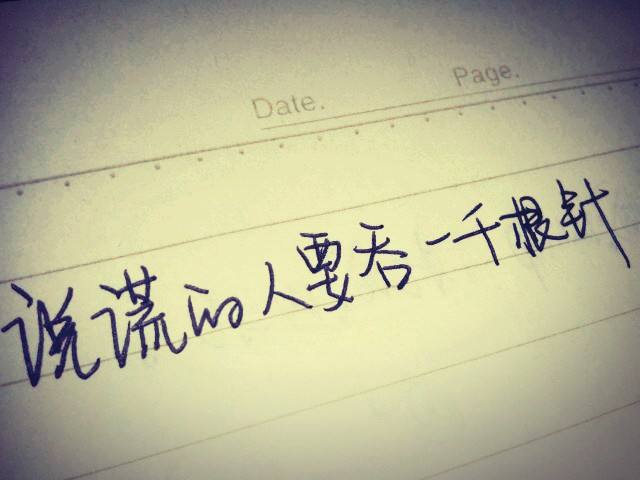 Date.
Page.
说谎的人要吞一千根针